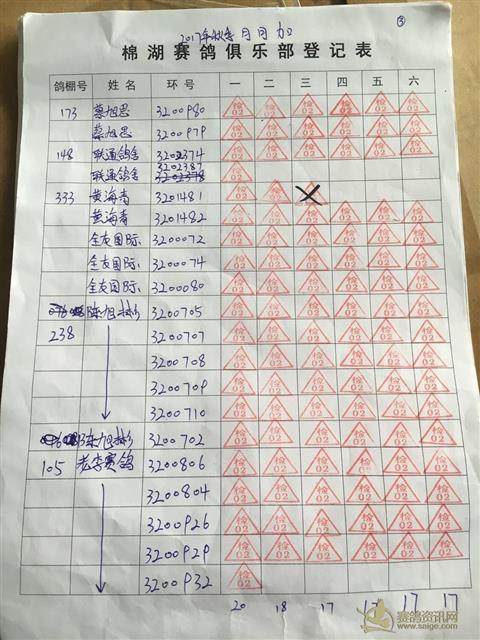 ③
2017年秋季 月月加
棉湖赛鸽俱乐部登记表
鸽棚号 姓名 环号 一 二 三 四 五 六
173 蔡旭思 3200980 检02 检02 检02 检02 检02 检02
蔡旭思 3200979 检02 检02 检02 检02 检02 检02
148 联通鸽舍 3202374 检02 检02 检02 检02 检02 检02
联通鸽舍 3202387 3202378 检02
333 黄海青 3201481 检02 检02
黄海青 3201482 检02 检02 检02 检02 检02 检02
全友国际 3200072 检02 检02 检02 检02 检02 检02
全友国际 3200074 检02 检02 检02 检02 检02 检02
全友国际 3200080 检02 检02 检02 检02 检02 检02
陈旭彬 3200705 检02 检02 检02 检02 检02 检02
238 3200707 检02 检02 检02 检02 检02 检02
3200708 检02 检02 检02 检02 检02 检02
3200709 检02 检02 检02 检02 检02 检02
3200710 检02 检02 检02 检02 检02 检02
陈旭彬 3200702 检02 检02 检02 检02 检02 检02
105 老李赛鸽 3200806 检02 检02 检02 检02 检02 检02
3200804 检02 检02 检02 检02 检02 检02
3200926 检02 检02 检02 检02 检02 检02
3200929 检02 检02 检02 检02 检02 检02
3200932 检02
20 18 17 17 17 17
赛鸽资讯网
www.saige.com